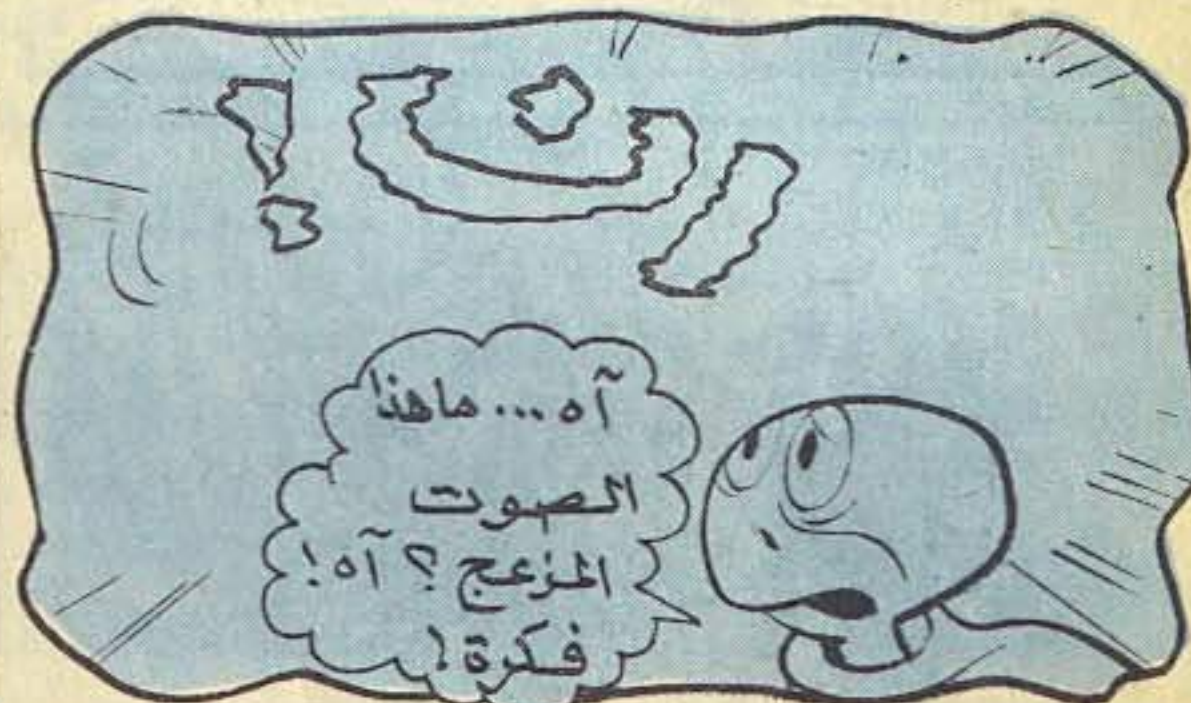 رن!
آه... ماهذا
الصوت
المزعج؟ آه!
فكرة!